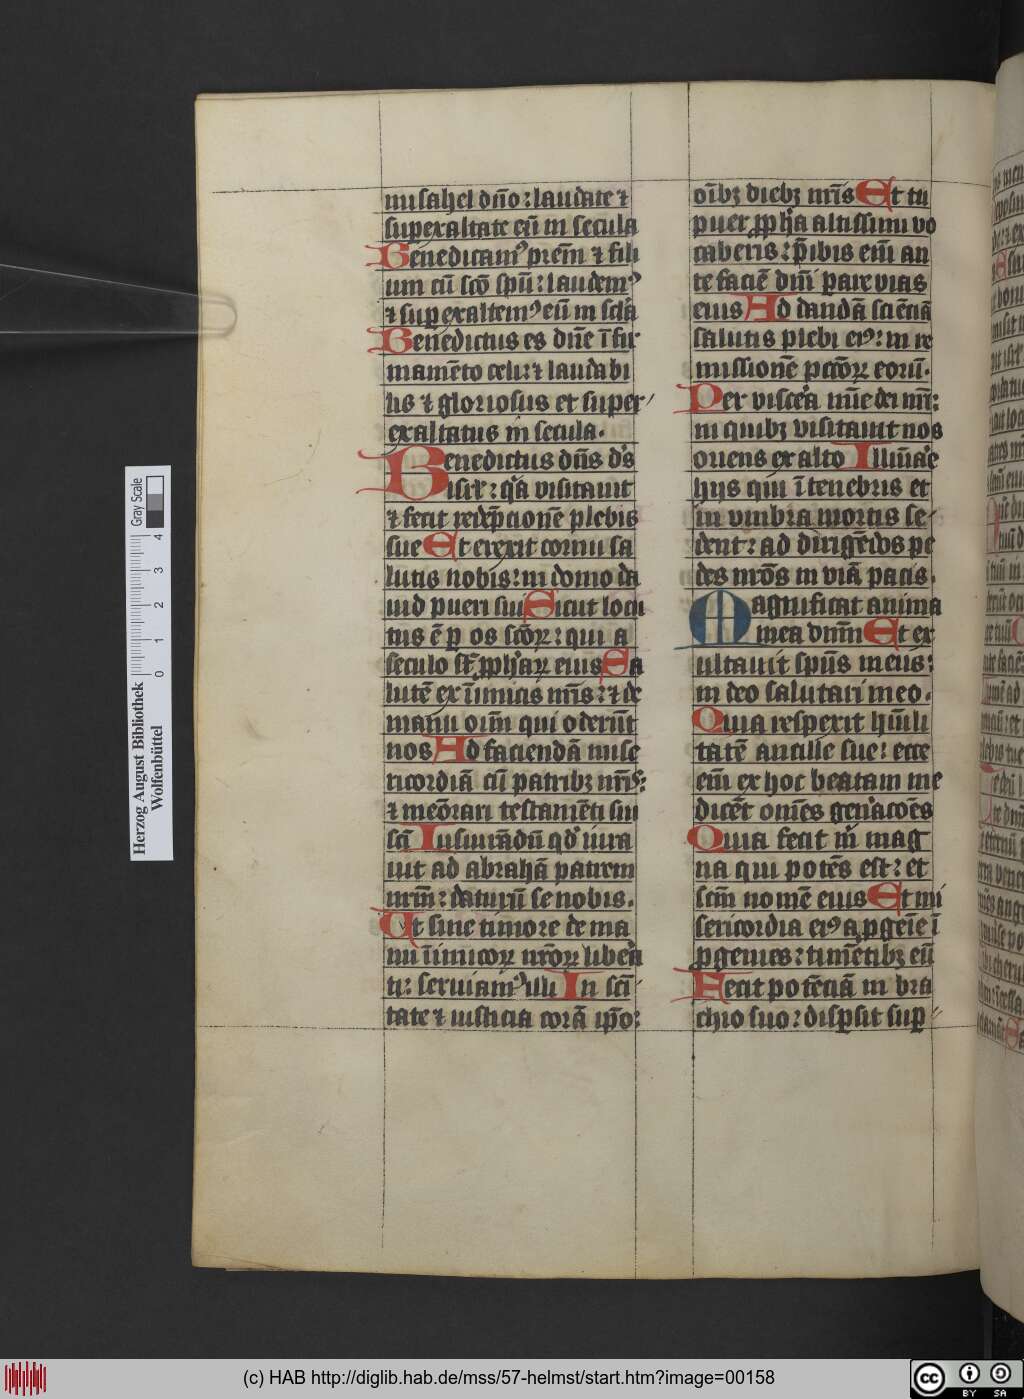 misahel dn̄o : laudate ⁊
superexaltate eū in secula
Benedicamꝰ prem̄ ⁊ fili
um cū sc̄o spū : laudemꝰ
⁊ superexaltemꝰ eū in scl̄a
Benedictus es dn̄e ī fir
mamēto celi : ⁊ laudabi
lis ⁊ gloriosus et super
exaltatus in secula.
Benedictus dn̄s d's
isrl' : q'a visitauit
⁊ fecit redēpcionē plebis
sue Et erexit cornu sa
lutis nobis : in domo da
uid pueri sui Sicut locu
tus ē ꝑ os sc̄oꝝ : qui a
seculo st̄ ꝓph'aꝝ eius Sa
lutē ex īimicis nr̄is : ⁊ de
manu oīm qui oderūt
nos Ad faciendā mise
ricordiā cū patribꝫ nr̄is :
⁊ memorari testamēti sui
sc̄i Iusiurādū qd' iura
uit ad abrahā patrem
nrm̄ : daturū se nobis.
Ut sine timore de ma
nu īimicoꝝ nr̄oꝝ libe'a
ti : seruiamꝰ illi In sc̄i
tate ⁊ iusticia corā ip̄o :
oībꝫ diebꝫ nr̄is Et tu
puer ꝓph'a altissimi vo
caberis : p̄ibis eni̅ an
te faciē dn̄i parare vias
eius Ad dandā sciēciā
salutis plebi eiꝰ : in re
missionē pcc̄oꝝ eorū.
Per visce'a mīe dei nr̄i :
in quibꝫ visitauit nos
oriens ex alto Illūīa'e
hijs qui ī tenebris et
in vmbra mortis se
dent : ad dirigēdos pe
des nr̄os in viā pacis.
Magnificat anima
mea dn̄m Et ex
ultauit spūs meus :
in deo salutari meo.
Quia respexit hūili
tatē ancille sue : ecce
eni̅ ex hoc beatam me
dicēt omēs gen'acōēs
Quia fecit m̄ mag
na qui potēs est : et
scm̄ nomē eius Et mi
sericordia eiꝰ a ꝓgeīe ī
ꝓgenies : timētibꝫ eū
Fecit potēciā in bra
chio suo : dispsit sup
Herzog August Bibliothek
Wolfenbüttel
Gray Scale
0 1 2 3 4
(c) HAB http://diglib.hab.de/mss/57-helmst/start.htm?image=00158
cc BY SA